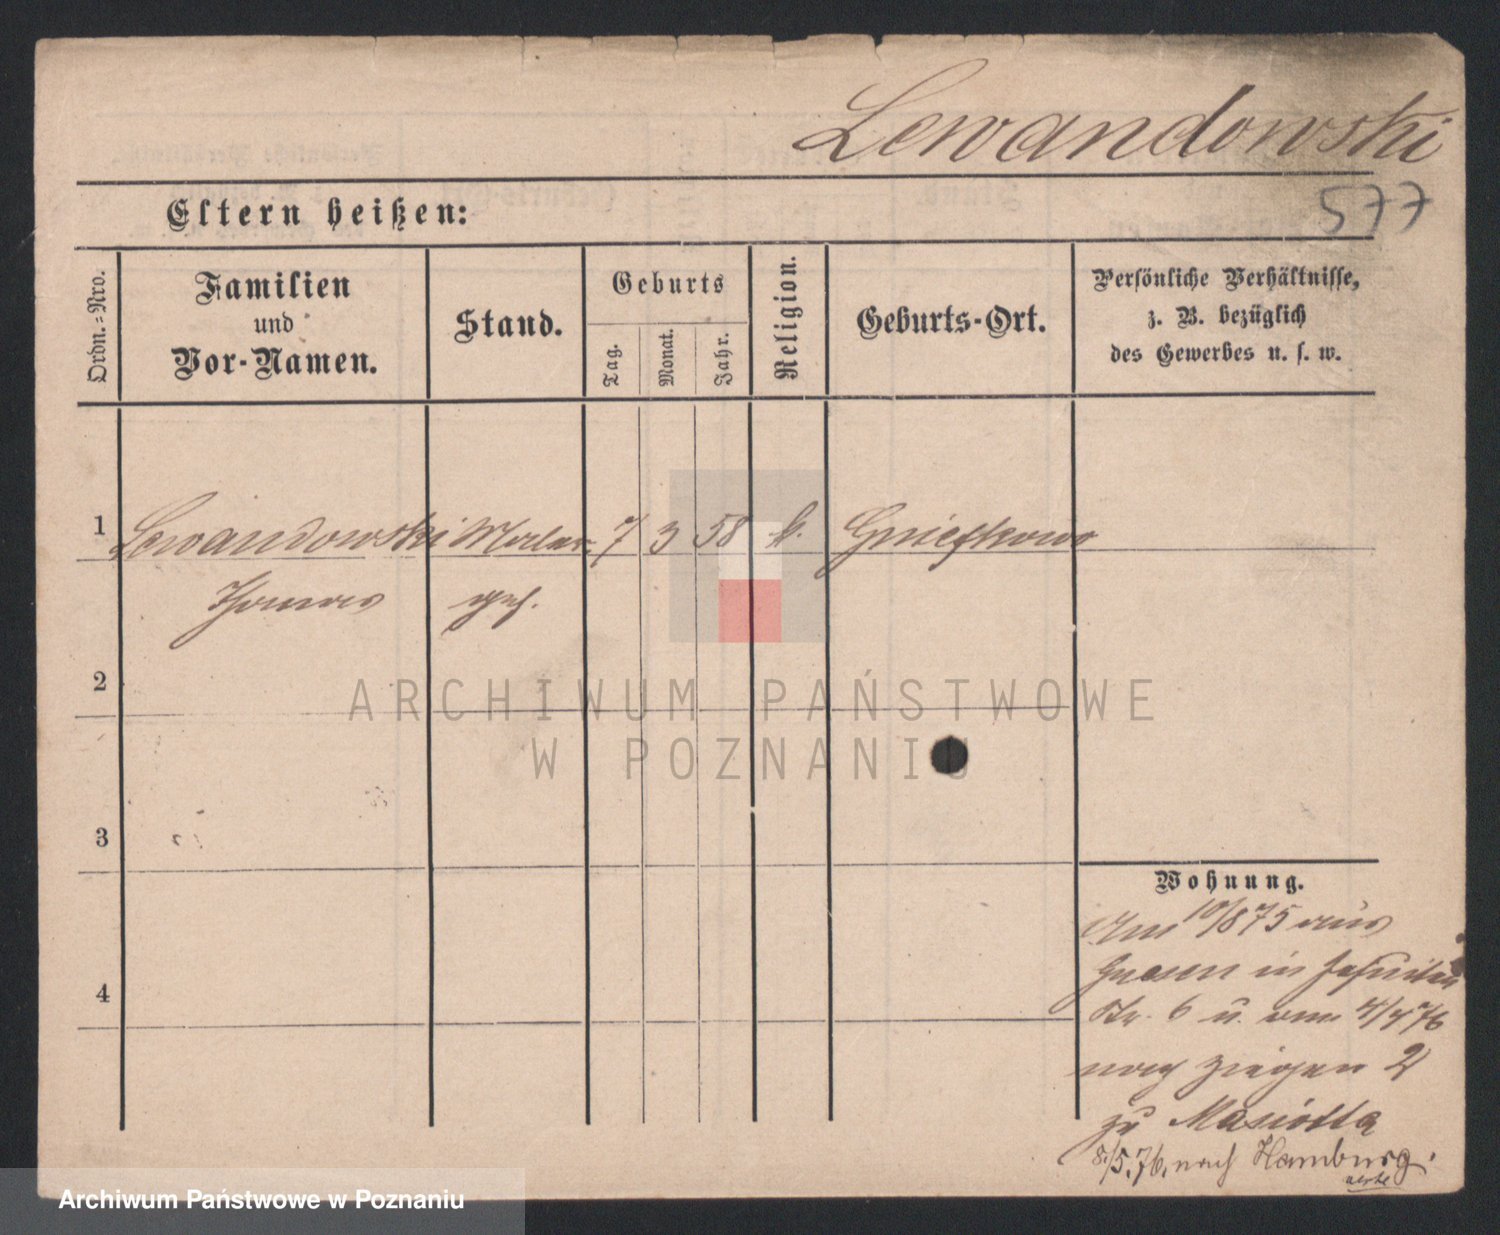 Lewandowski
577
Eltern heißen:
Ordn.-Nro.
Familien
und
Vor-Namen.
Stand.
Geburts
Tag.
Monat.
Jahr.
Religion.
Geburts-Ort.
Persönliche Verhältnisse,
z. B. bezüglich
des Gewerbes u. s. w.
1 Lewandowski Maler 7 3 58 k. Gniefkowo
Thomas geh.
2
ARCHIWUM PAŃSTWOWE
W POZNANIU
3
Wohnung.
Am 10/875 aus
Gnesen in Jesuiten
4
Str. 6 u. am 4/4 76
nach Ziegen 2
zu Masiotta
8./5.76. nach Hamburg.
Archiwum Państwowe w Poznaniu